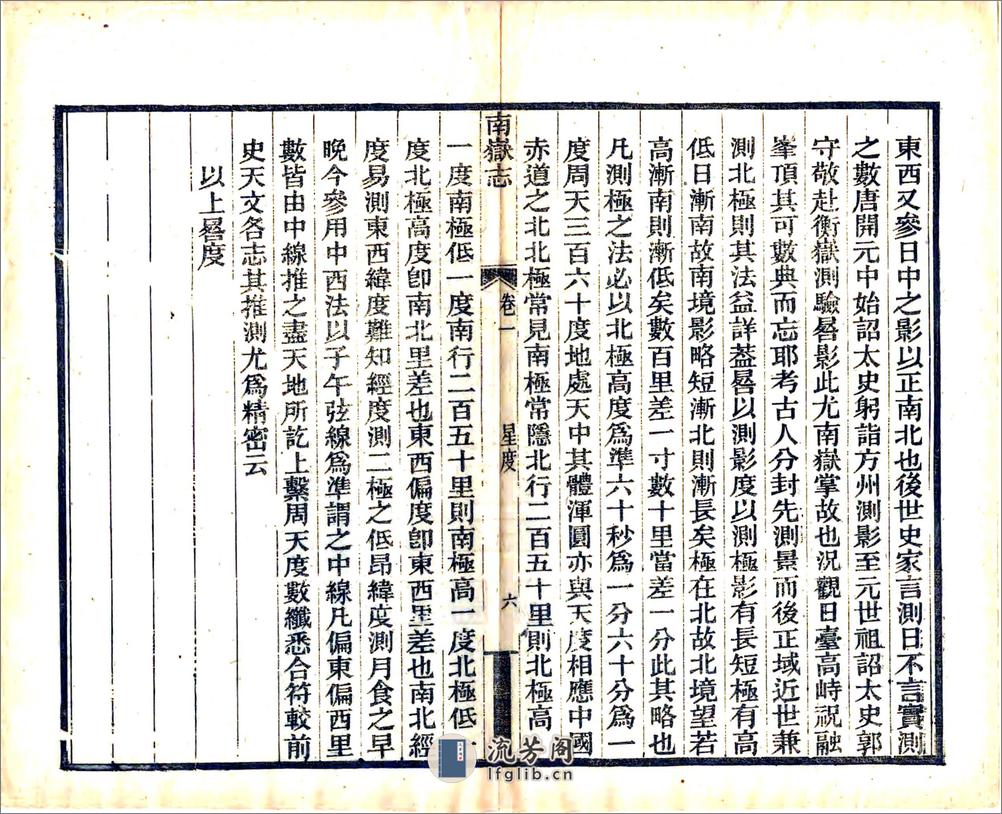 東西又參日中之影以正南北也後世史家言測日不言實測
之數唐開元中始詔太史躬詣方州測影至元世祖詔太史郭
守敬赴衡嶽測驗晷影此尤南嶽掌故也況觀日臺高峙祝融
峯頂其可數典而忘耶考古人分封先測景而後正域近世兼
測北極則其法益詳葢晷以測影度以測極影有長短極有高
低日漸南故南境影略短漸北則漸長矣極在北故北境望若
高漸南則漸低矣數百里差一寸數十里當差一分此其略也
凡測極之法必以北極高度爲準六十秒爲一分六十分爲一
度周天三百六十度地處天中其體渾圓亦與天度相應中國
赤道之北北極常見南極常隱北行二百五十里則北極高
南嶽志 卷一 星度 六
一度南極低一度南行二百五十里則南極高一度北極低一
度北極高度卽南北里差也東西偏度卽東西里差也南北經
度易測東西緯度難知經度測二極之低昂緯度測月食之早
晚今參用中西法以子午弦線爲準謂之中線凡偏東偏西里
數皆由中線推之盡天地所訖上繫周天度數纖悉合符較前
史天文各志其推測尤爲精密云
以上晷度
流芳阁
lfglib.cn